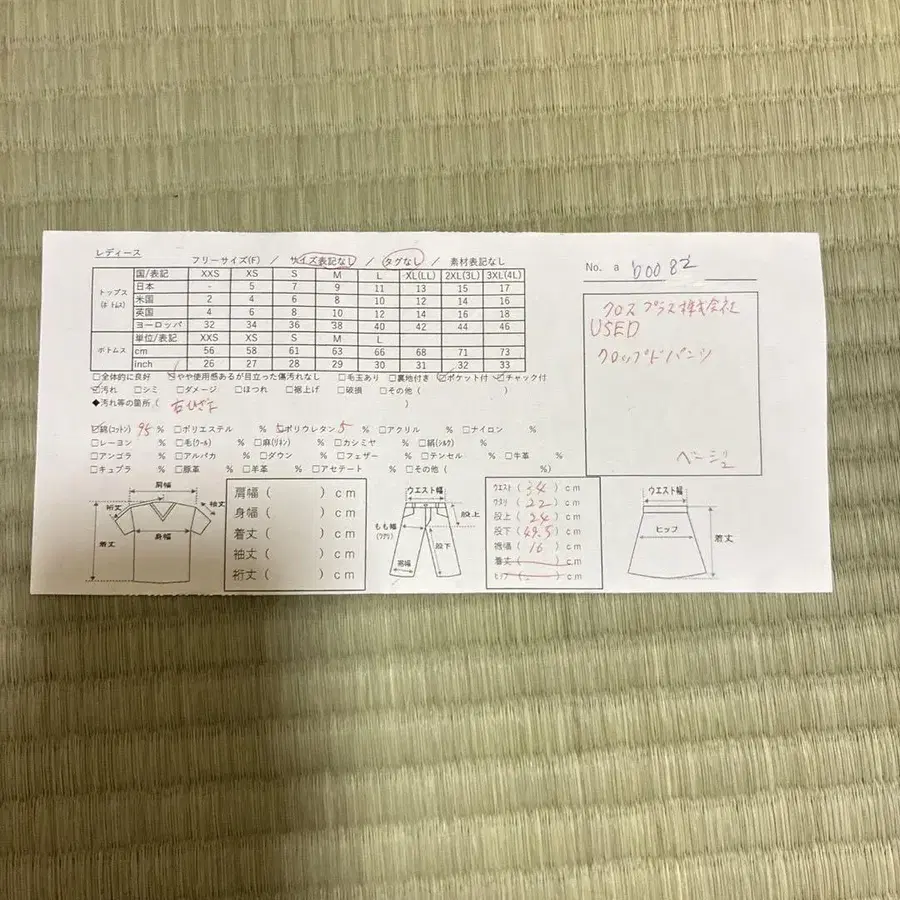 レディース
フリーサイズ(F) / サイズ表記なし / タグなし / 素材表記なし
No. a b0082
国/表記 XXS XS S M L XL(LL) 2XL(3L) 3XL(4L)
トップス
(ボトムス)
日本 - 5 7 9 11 13 15 17
米国 2 4 6 8 10 12 14 16
英国 4 6 8 10 12 14 16 18
ヨーロッパ 32 34 36 38 40 42 44 46
ボトムス
単位/表記 XXS XS S M L
cm 56 58 61 63 66 68 71 73
inch 26 27 28 29 30 31 32 33
クロスプラス株式会社
USED
クロップドパンツ
ベージュ
□全体的に良好 ☑やや使用感あるが目立った傷汚れなし □毛玉あり □裏地付き ☑ポケット付 ☑チャック付
☑汚れ □シミ □ダメージ □ほつれ □裾上げ □破損 □その他( )
◆汚れ等の箇所( 右ひざ下 )
☑綿(コットン) 95 % □ポリエステル % ☑ポリウレタン 5 % □アクリル % □ナイロン %
□レーヨン % □毛(ウール) % □麻(リネン) % □カシミヤ % □絹(シルク) %
□アンゴラ % □アルパカ % □ダウン % □フェザー % □テンセル % □牛革 %
□キュプラ % □豚革 % □羊革 % □アセテート % □その他( %)
肩幅
裄丈
袖丈
身幅
着丈
肩幅( )cm
身幅( )cm
着丈( )cm
袖丈( )cm
裄丈( )cm
ウエスト幅
股上
もも幅
(ワタリ)
股下
裾幅
ウエスト( 34 )cm
ワタリ( 22 )cm
股上( 24 )cm
股下( 49.5 )cm
裾幅( 16 )cm
着丈( )cm
ヒップ( )cm
ウエスト幅
ヒップ
着丈